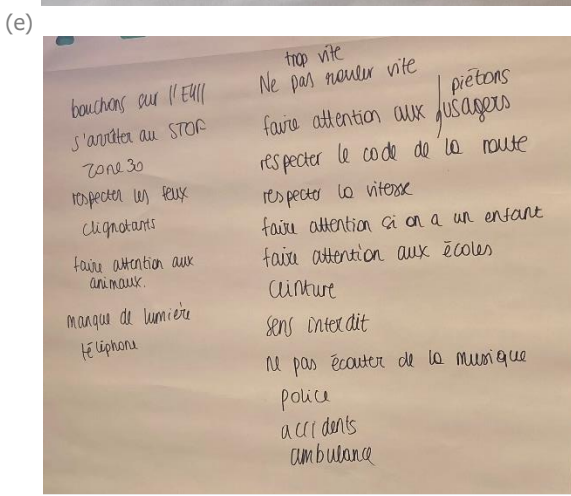 (e)
bouchons sur l'E411
s'arrêter au STOP
zone 30
respecter les feux
clignotants
faire attention aux
animaux.
manque de lumière
téléphone
trop vite
Ne pas rouler vite
faire attention aux piétons
usagers
respecter le code de la route
respecter la vitesse
faire attention si on a un enfant
faire attention aux écoles
ceinture
sens interdit
ne pas écouter de la musique
police
accidents
ambulance